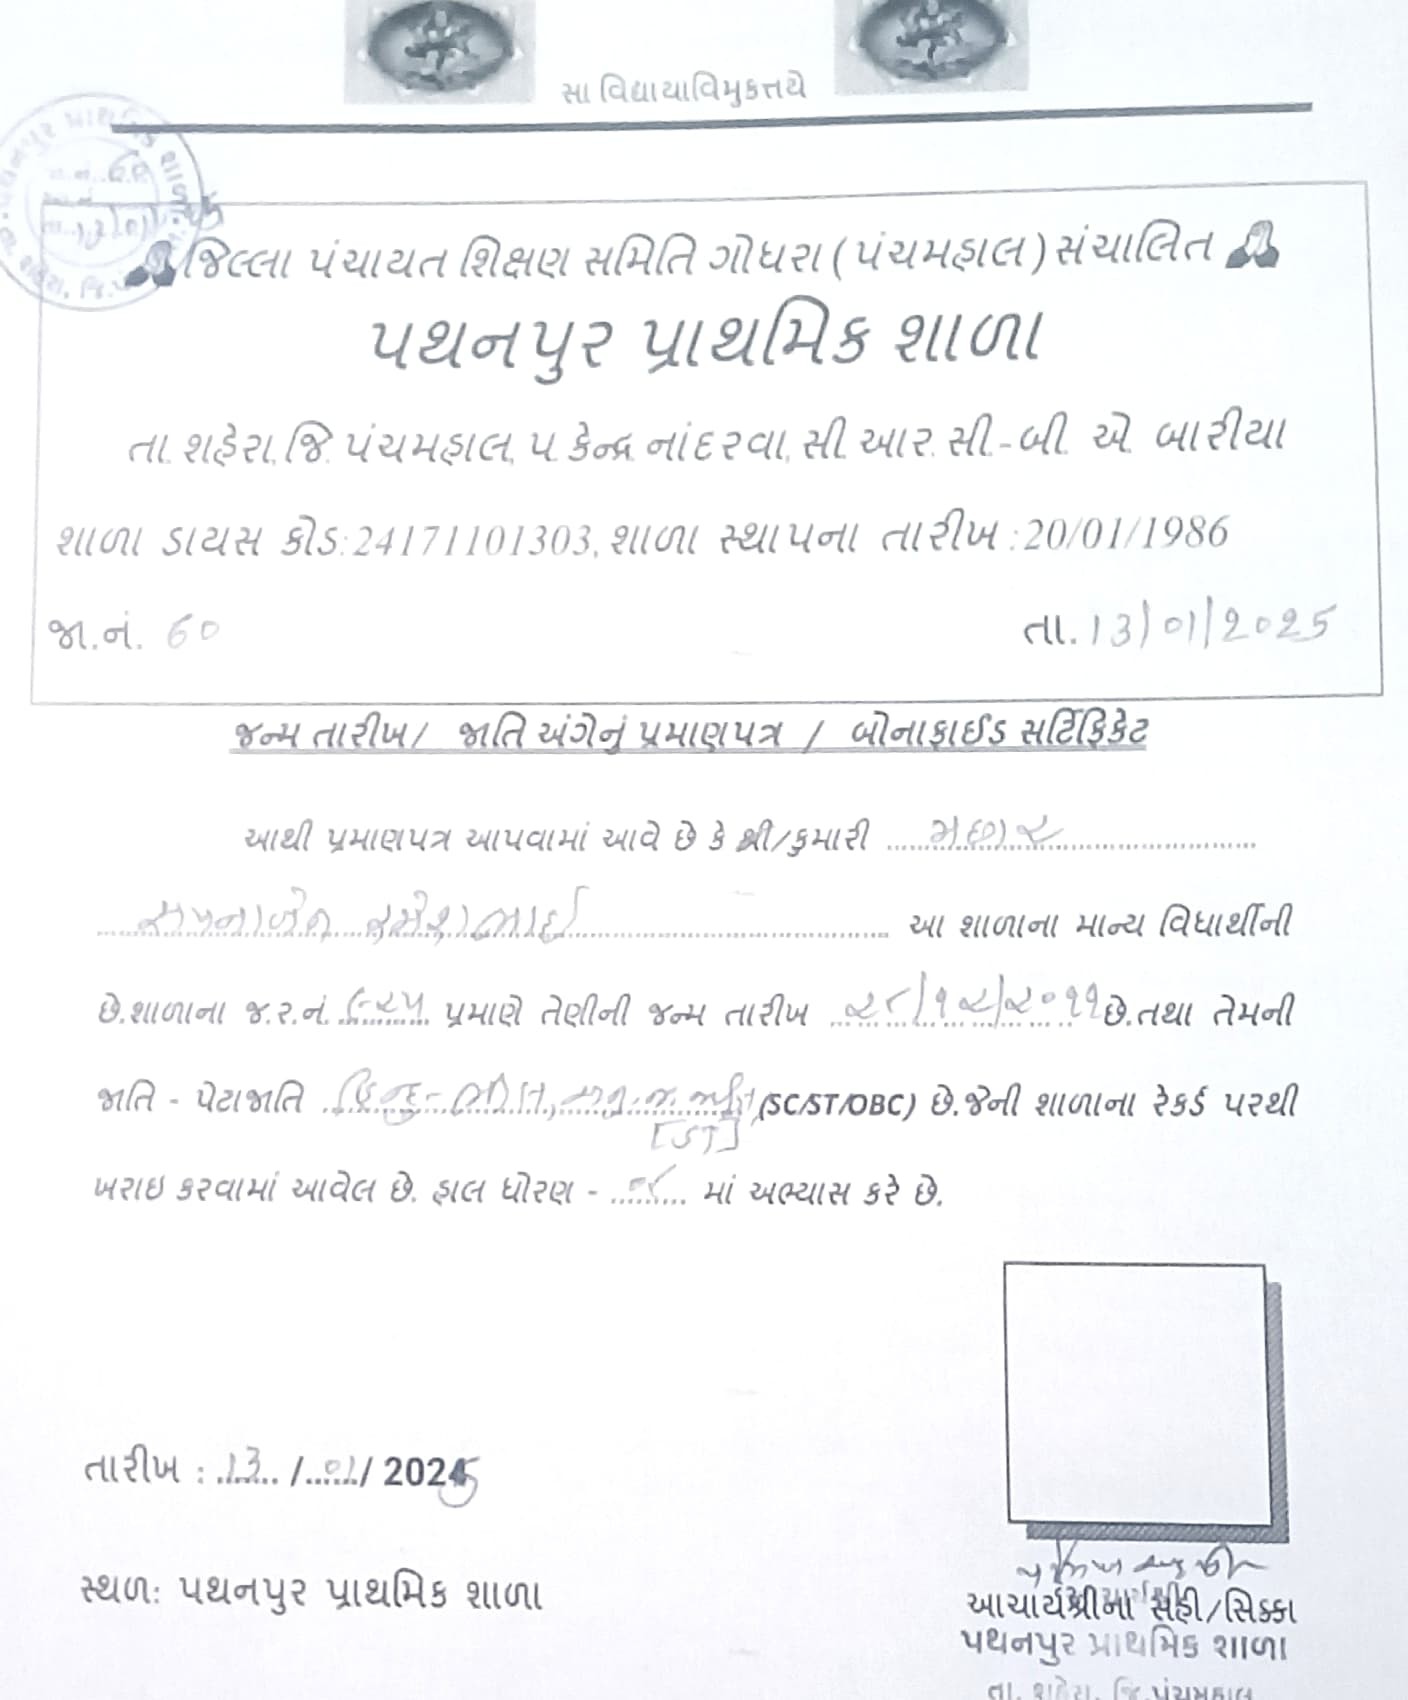 સા વિદ્યાયાવિમુકતયે
જિલ્લા પંચાયત શિક્ષણ સમિતિ ગોધરા (પંચમહાલ) સંચાલિત
પથનપુર પ્રાથમિક શાળા
તા. શહેરા, જિ. પંચમહાલ, પ. કેન્દ્ર નાંદરવા, સી.આર. સી.-બી. એ. બારીયા
શાળા ડાયસ કોડ:24171101303, શાળા સ્થાપના તારીખ :20/01/1986
જા.નં. 60 તા. 13/01/2025
જન્મ તારીખ/ જાતિ અંગેનું પ્રમાણપત્ર / બોનાફાઈડ સર્ટિફિકેટ
આથી પ્રમાણપત્ર આપવામાં આવે છે કે શ્રી/કુમારી મછાર
સપનાબેન રમેશભાઈ આ શાળાના માન્ય વિધાર્થીની
છે.શાળાના જ.ર.નં. ૬૨૫ પ્રમાણે તેણીની જન્મ તારીખ ૨૮/૧૨/૨૦૧૧ છે.તથા તેમની
જાતિ - પેટાજાતિ હિન્દુ-ભીલ, અનુ.જ.જાતિ (SC/ST/OBC) છે.જેની શાળાના રેકર્ડ પરથી
[ST]
ખરાઇ કરવામાં આવેલ છે. હાલ ધોરણ - માં અભ્યાસ કરે છે.
તારીખ : 13 / 01 / 2025
સ્થળ: પથનપુર પ્રાથમિક શાળા
આચાર્યશ્રીના સહી/સિક્કા
પથનપુર પ્રાથમિક શાળા
તા. શહેરા, જિ.પંચમહાલ